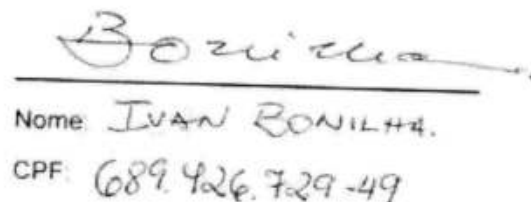 Bonilha
Nome: IVAN BONILHA.
CPF: 689.426.729-49